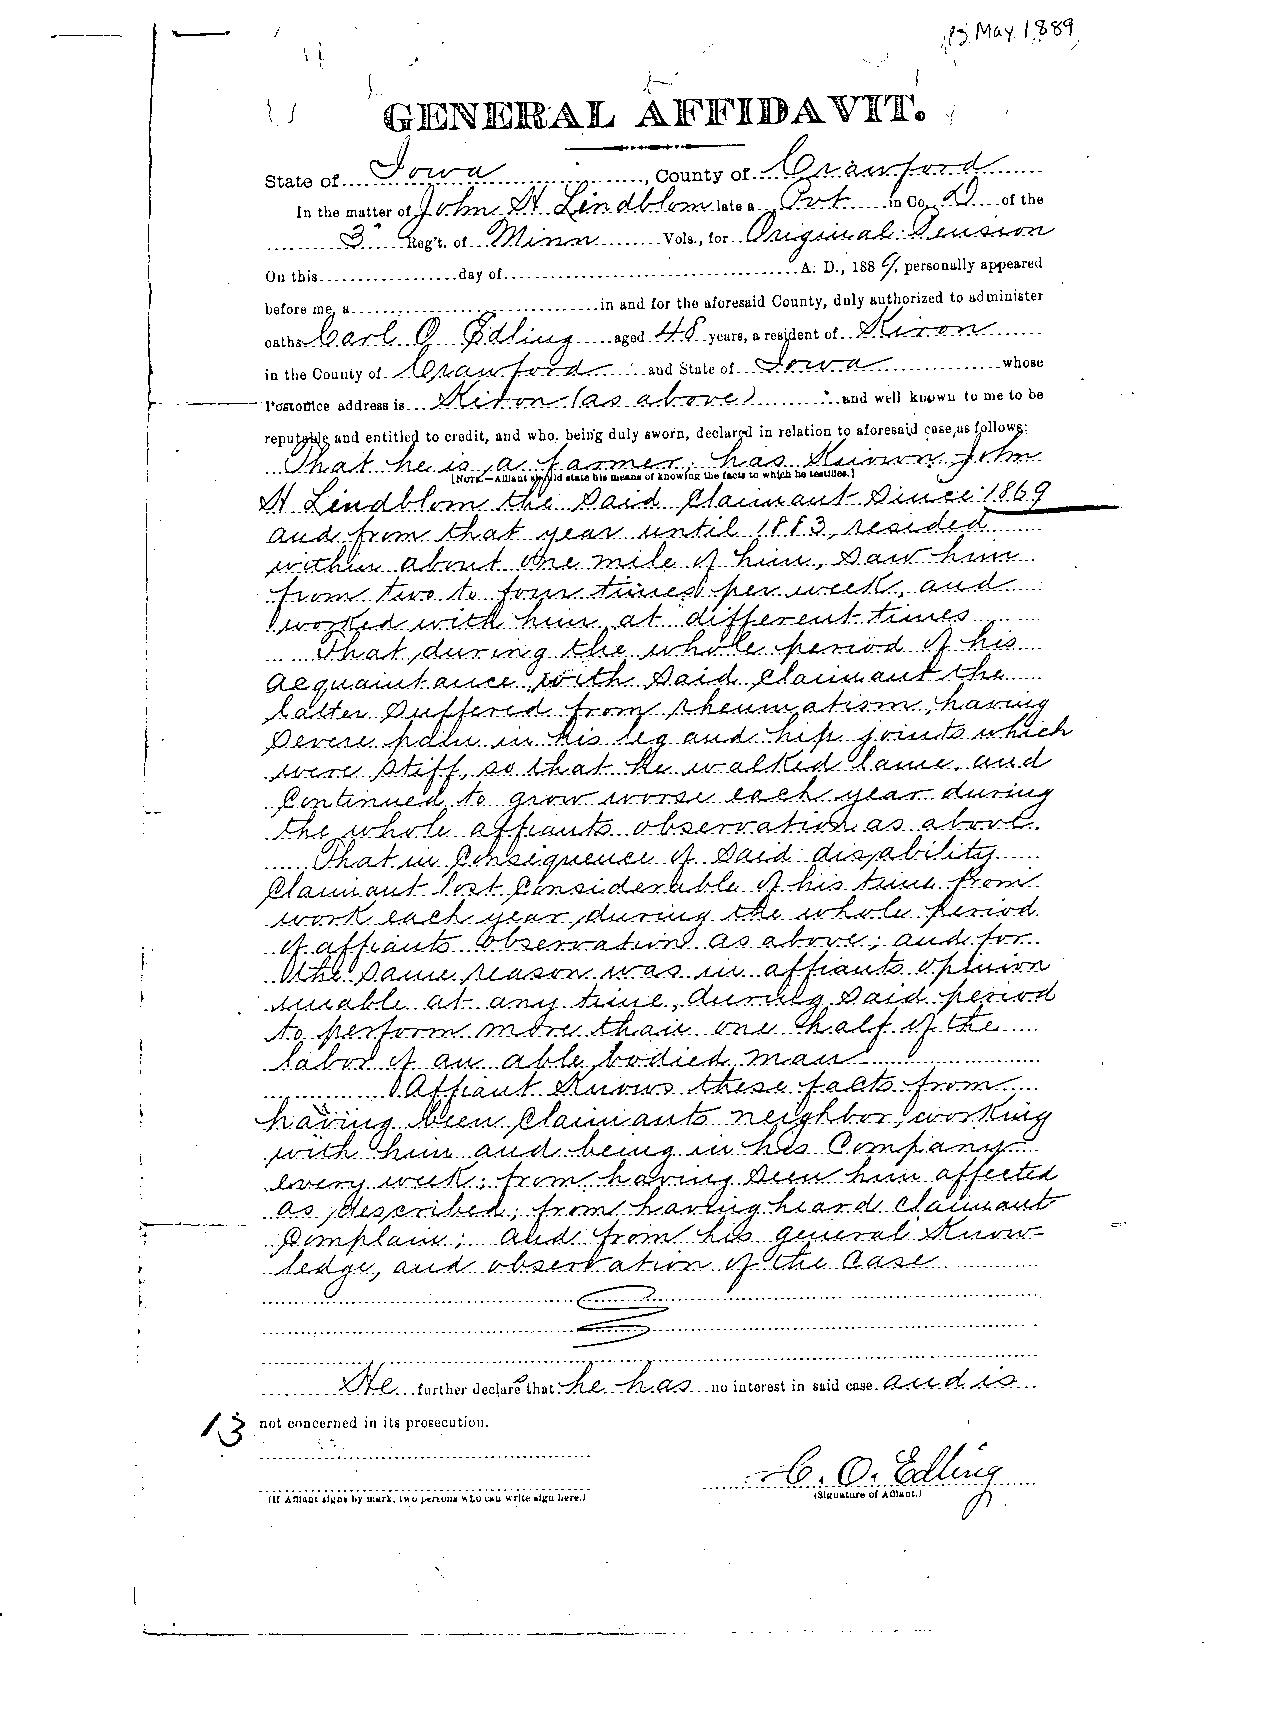 13 May 1889
GENERAL AFFIDAVIT.
State of Iowa, County of Crawford
In the matter of John H Lindblom late a Pvt in Co. D of the
3" Reg't. of Minn Vols., for Original Pension
On this day of A. D., 1889, personally appeared
before me, a in and for the aforesaid County, duly authorized to administer
oaths Carl O Edling aged 48 years, a resident of Kiron
in the County of Crawford and State of Iowa whose
Postoffice address is Kiron (as above) and well known to me to be
reputable and entitled to credit, and who, being duly sworn, declared in relation to aforesaid case, as follows:
That he is a farmer, has Known John
[NOTE.—Affiant should state his means of knowing the facts to which he testifies.]
H Lindblom the said Claimant since 1869
and from that year until 1883, resided
within about one mile of him, saw him
from two to four times per week, and
worked with him at different times
That during the whole period of his
acquaintance with said Claimant the
latter suffered from rheumatism, having
severe pain in his leg and hip joints which
were stiff, so that he walked lame, and
Continued to grow worse each year during
the whole affiants observation as above.
That in Consequence of said disability
Claimant lost Considerable of his time from
work each year during the whole period
of affiants observation as above; and for
the same reason was in affiants opinion
unable at any time, during said period
to perform more than one half of the
labor of an able bodied man
Affiant Knows these facts from
having been Claimants neighbor, working
with him and being in his Company
every week; from having seen him affected
as described; from having heard Claimant
Complain; and from his general Know-
ledge, and observation of the Case
He further declare s that he has no interest in said case and is
13 not concerned in its prosecution.
C. O. Edling
(If Affiant signs by mark, two persons who can write sign here.)
(Signature of Affiant.)